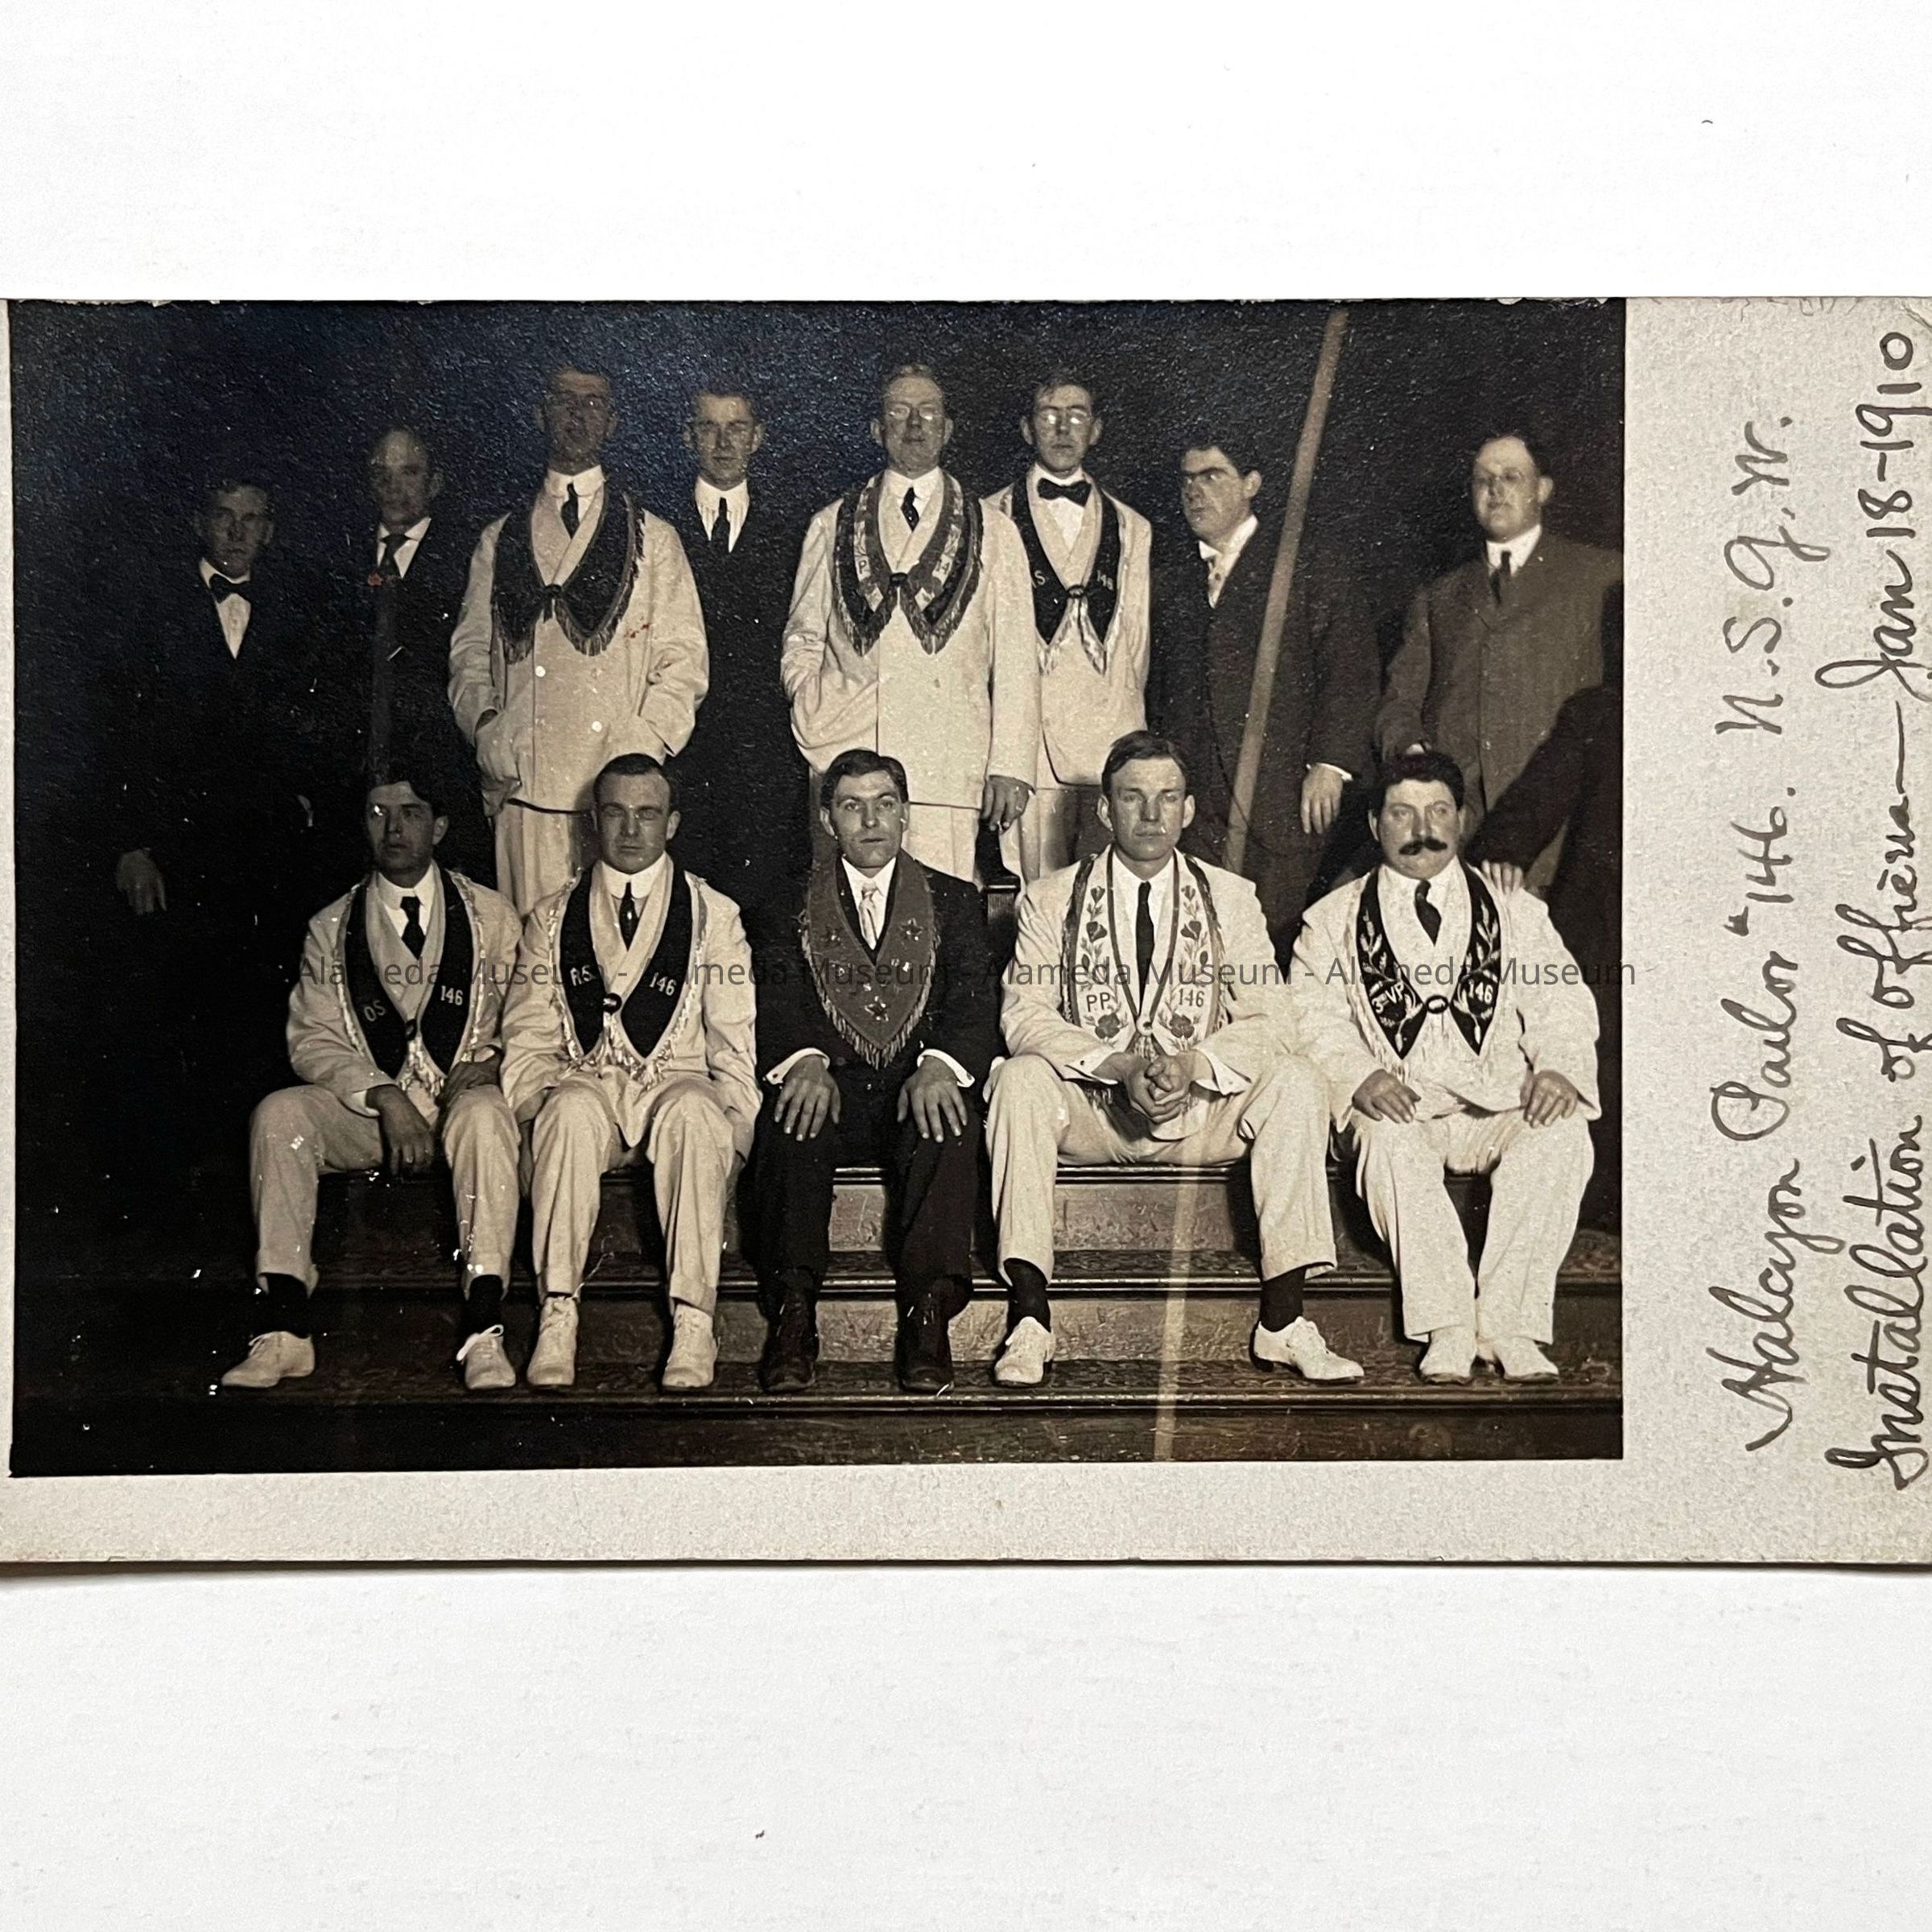 Halcyon Parlor "146. N.S.G.W.
Installation of officers — Jan 18-1910
P 14
S 146
OS 146
R.S. 146
PP 146
3RD VP 146
Alameda Museum - Alameda Museum - Alameda Museum - Alameda Museum